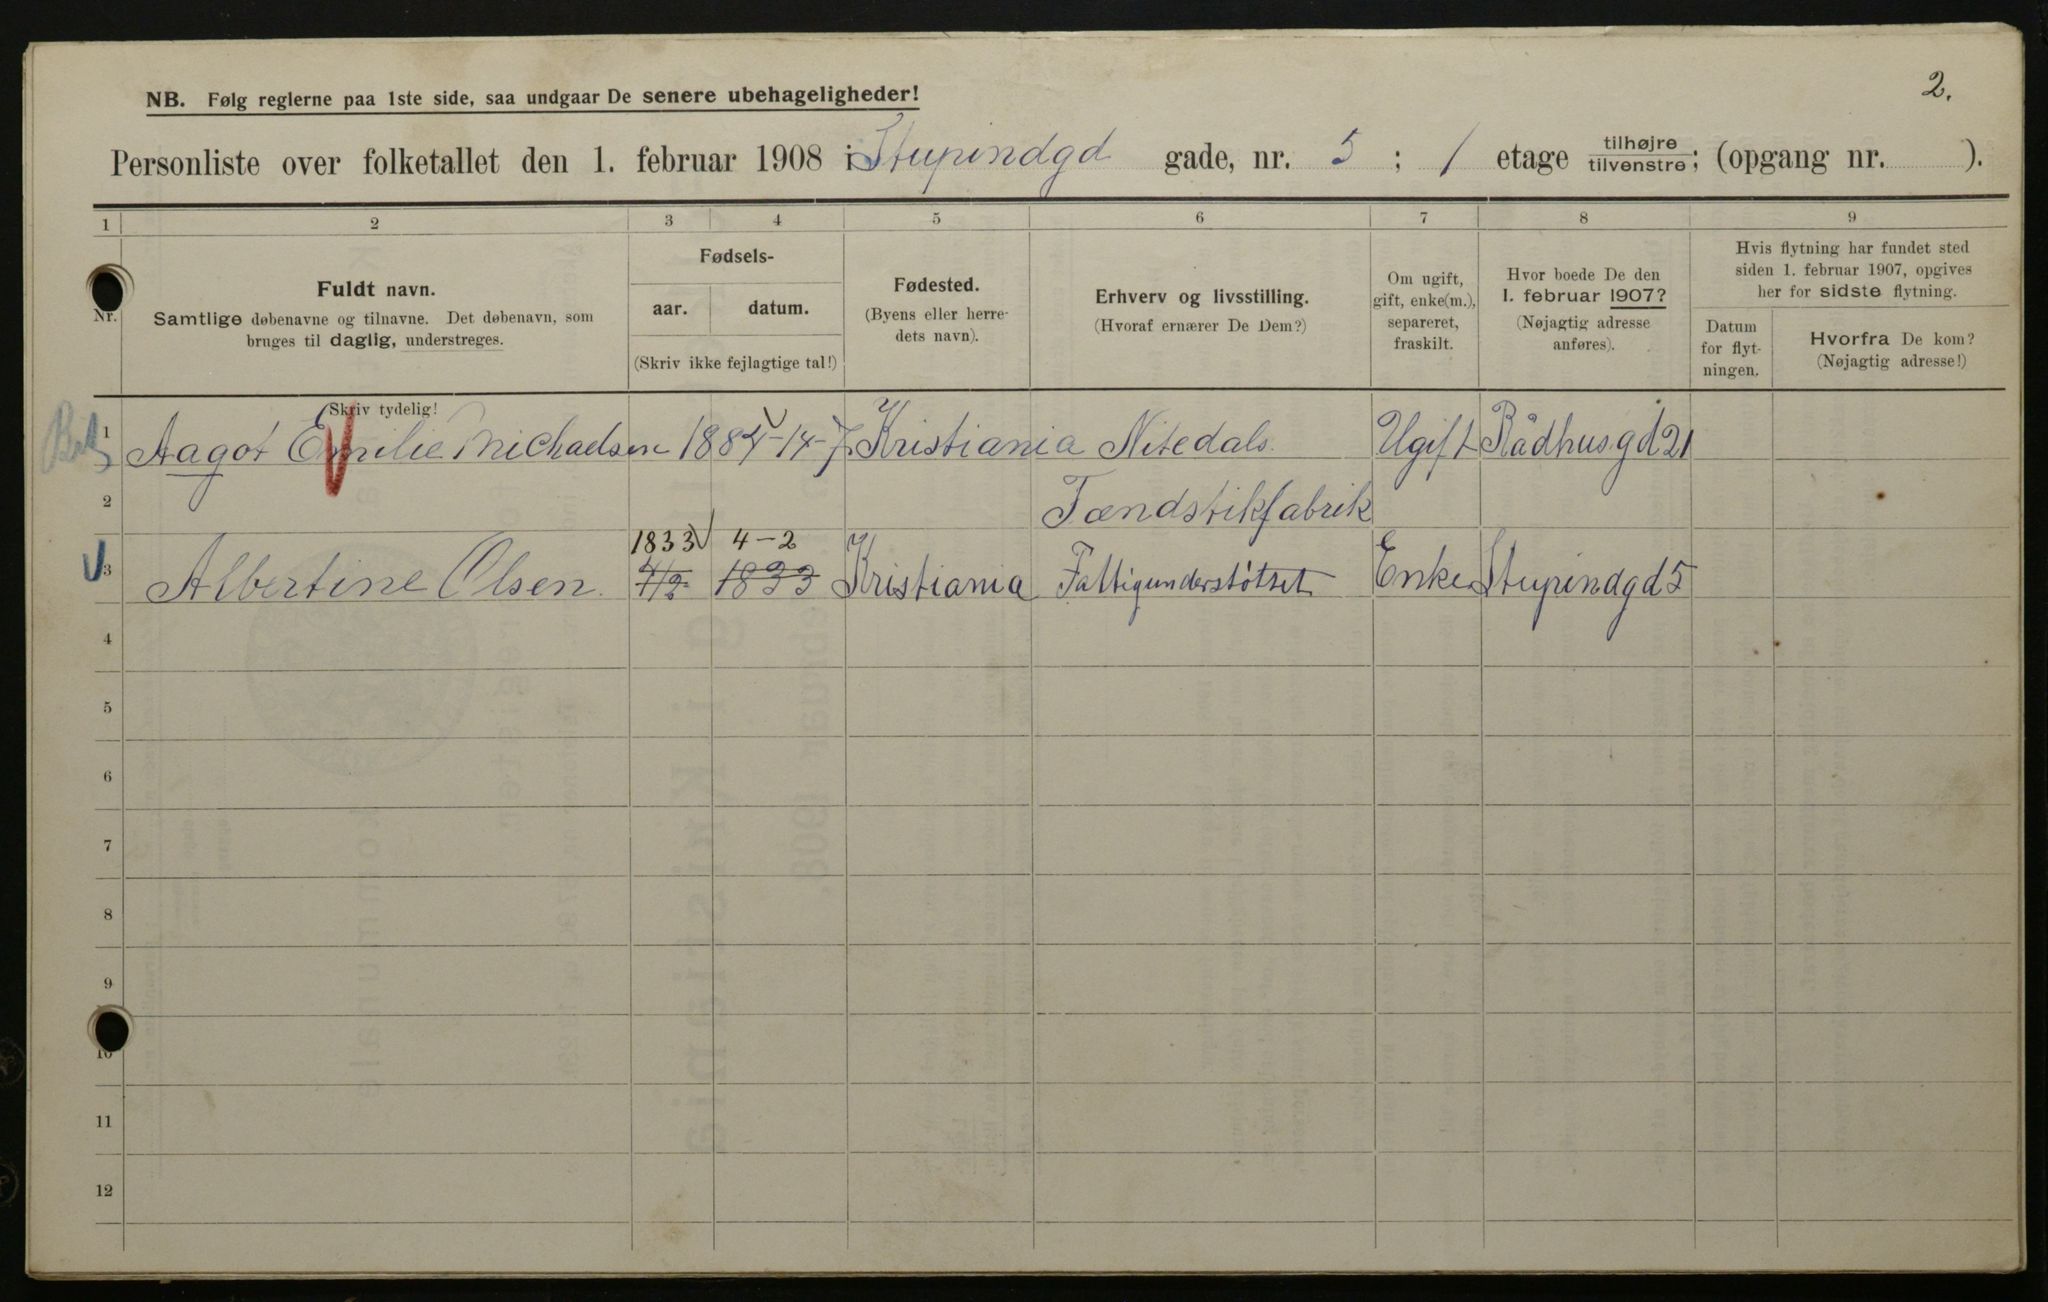 2.
NB. Følg reglerne paa 1ste side, saa undgaar De senere ubehageligheder!
Personliste over folketallet den 1. februar 1908 i Stupindgd gade, nr. 5 ; 1 etage tilhøjre tilvenstre; (opgang nr. ).
1 2 3 4 5 6 7 8 9
Nr.
Fuldt navn.
Samtlige døbenavne og tilnavne. Det døbenavn, som
bruges til daglig, understreges.
Fødsels-
aar. datum.
(Skriv ikke fejlagtige tal!)
Fødested.
(Byens eller herre-
dets navn).
Erhverv og livsstilling.
(Hvoraf ernærer De Dem?)
Om ugift,
gift, enke(m.),
separeret,
fraskilt.
Hvor boede De den
1. februar 1907?
(Nøjagtig adresse
anføres).
Hvis flytning har fundet sted
siden 1. februar 1907, opgives
her for sidste flytning.
Datum
for flyt-
ningen.
Hvorfra De kom?
(Nøjagtig adresse!)
Skriv tydelig!
1 Aagot Emilie Michaelsen 1884 14-7 Kristiania Nitedals Ugift Rådhusgd 21
2 Tændstikfabrik
1833 4-2
3 Albertine Olsen 4/2 1833 Kristiania Fattigunderstøtset Enke Stupindgd 5
4
5
6
7
8
9
10
11
12